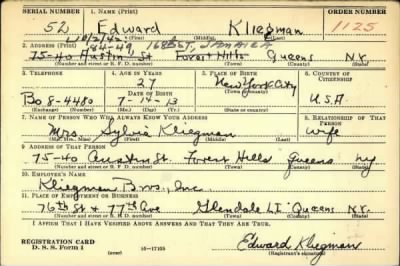 SERIAL NUMBER 1. NAME (Print) ORDER NUMBER
52 Edward Kliegman 1125
(First) (Middle) (Last)
2. ADDRESS (Print) 84-49 168 St, JAMAICA
75-40 Austin St Forest Hills Queens N.Y.
(Number and street or R. F. D. number) (Town) (County) (State)
3. TELEPHONE 4. AGE IN YEARS 5. PLACE OF BIRTH 6. COUNTRY OF CITIZENSHIP
27 New York City
DATE OF BIRTH (Town or county)
Bo 8-4480 7-14-13 U.S.A.
(Exchange) (Number) (Mo.) (Day) (Yr.) (State or country)
7. NAME OF PERSON WHO WILL ALWAYS KNOW YOUR ADDRESS 8. RELATIONSHIP OF THAT PERSON
Mrs. Sylvia Kliegman wife
(Mr., Mrs., Miss) (First) (Middle) (Last)
9. ADDRESS OF THAT PERSON
75-40 Austin St. Forest Hills Queens NY
(Number and street or R. F. D. number) (Town) (County) (State)
10. EMPLOYER'S NAME
Kliegman Bros., Inc.
11. PLACE OF EMPLOYMENT OR BUSINESS
76th St & 77th Ave Glendale L.I. Queens N.Y.
(Number and street or R. F. D. number) (Town) (County) (State)
I AFFIRM THAT I HAVE VERIFIED ABOVE ANSWERS AND THAT THEY ARE TRUE.
REGISTRATION CARD
D. S. S. Form 1 (over) 16-17105 Edward Kliegman
(Registrant's signature)